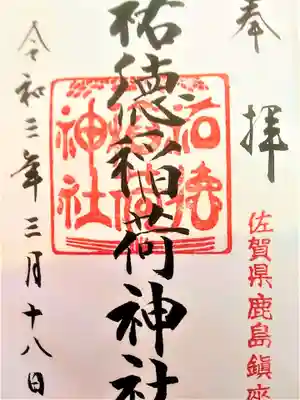 奉拝
佐賀県鹿島鎮座
祐徳稲荷神社
祐徳稲荷神社
令和三年三月十八日